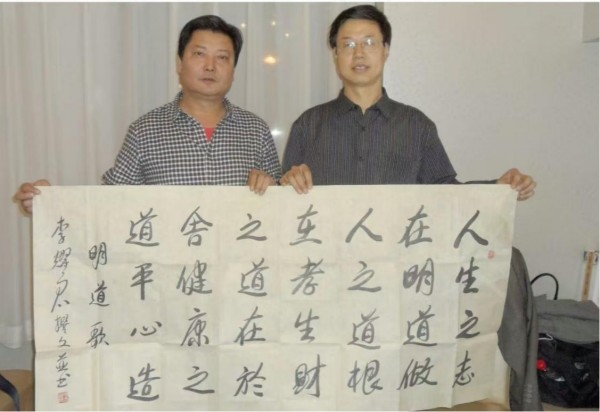 人生之志
在明道做
人之道根
在孝生財
之道在於
舍健康之
道平心造
明道歌
李耀君撰文并书